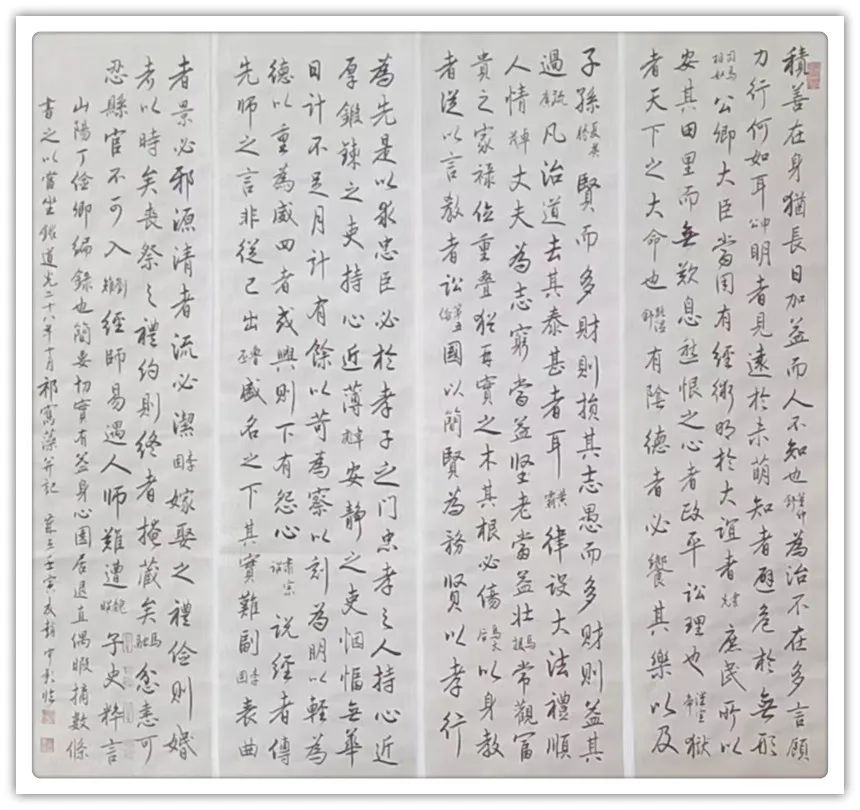 積善在身猶長日加益而人不知也董仲舒為治不在多言顧
力行何如耳申公明者見遠於未萌知者避危於無形
司馬相如公卿大臣當用有經術明於大誼者霍光庶民所以
安其田里而無歎息愁恨之心者政平訟理也漢宣帝獄
者天下之大命也路溫舒有陰德者必饗其樂以及
子孫夏侯勝賢而多財則損其志愚而多財則益其
過疏廣凡治道去其泰甚者耳黃霸律設大法禮順
人情卓茂丈夫為志窮當益堅老當益壯馬援常觀富
貴之家祿位重疊猶再實之木其根必傷馬太后以身教
者從以言教者訟第五倫國以簡賢為務賢以孝行
為先是以求忠臣必於孝子之門忠孝之人持心近
厚鍛鍊之吏持心近薄韋彪安靜之吏悃愊無華
日計不足月計有餘以苛為察以刻為明以輕為
德以重為威四者或興則下有怨心肅宗詔說經者傳
先師之言非從己出魯丕盛名之下其實難副李固表曲
者景必邪源清者流必潔李固嫁娶之禮儉則婚
者以時矣喪祭之禮約則終者掩藏矣馬融忿恚可
忍縣官不可入劉矩經師易遇人師難遭魏昭子史粹言
山陽丁儉卿編錄也簡要切實有益身心園居退直偶暇摘數條
書之以當坐銘道光二十八年十月祁寯藻并記